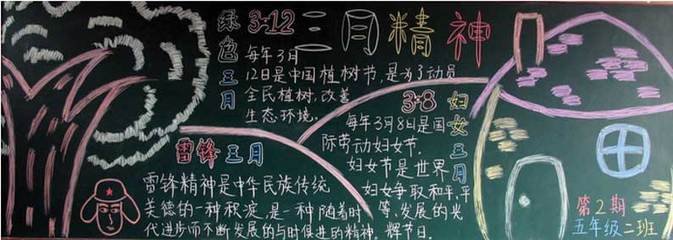 三月精神
绿色三月
3·12
每年3月
12日是中国植树节,是为了动员
全民植树,改善
生态环境。
雷锋三月
雷锋精神是中华民族传统
美德的一种积淀,是一种随着时
代进步而不断发展的与时俱进的精神。
3·8
妇女三月
每年3月8日是国
际劳动妇女节,
妇女节是世界
妇女争取和平,平
等、发展的光
辉节日。
第2期
五年级二班